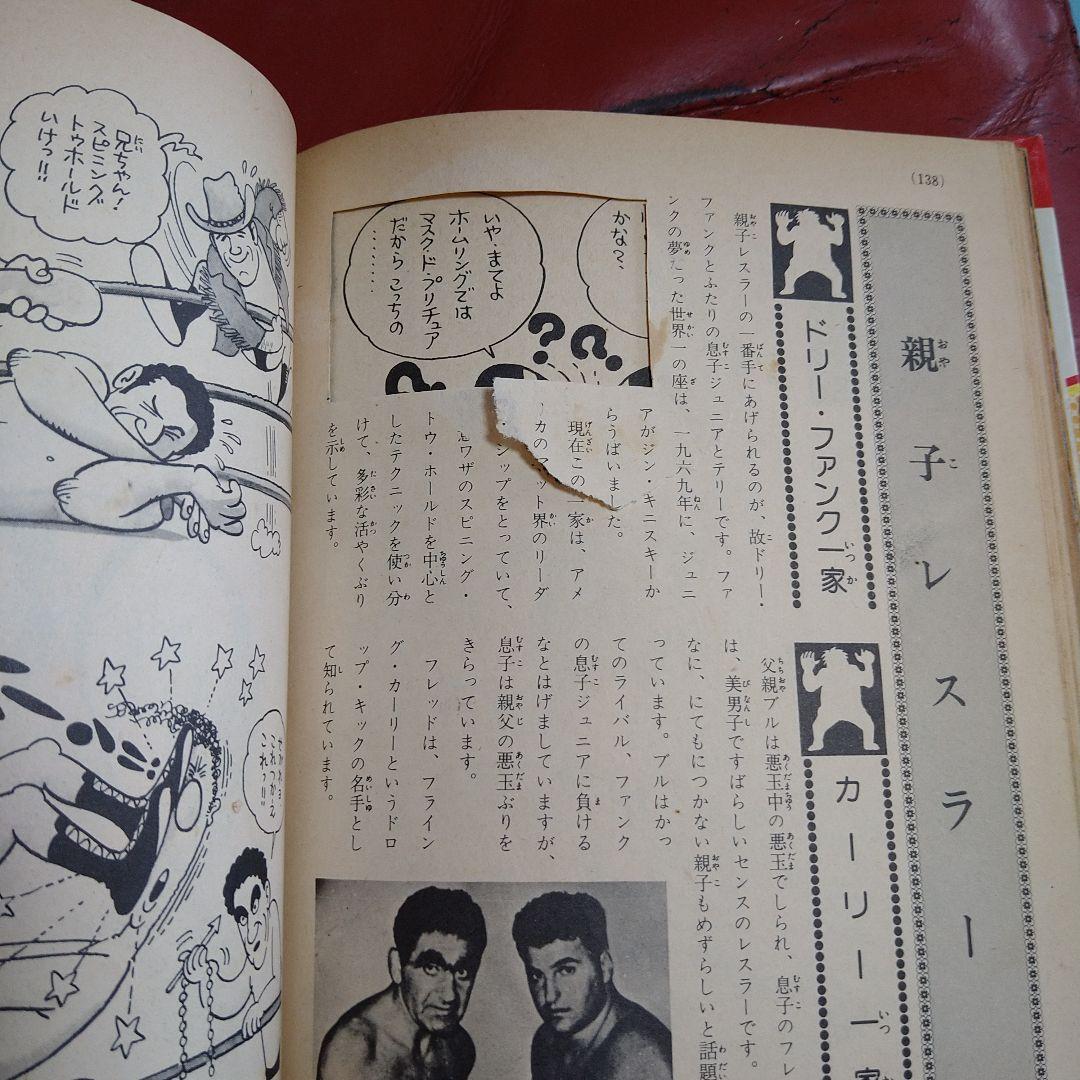 (138)
親子レスラー
ドリー・ファンク一家
親子レスラーの一番手にあげられるのが、故ドリー・
ファンクとふたりの息子ジュニアとテリーです。ファ
ンクの夢だった世界一の座は、一九六九年に、ジュニ
アがジン・キニスキーか
らうばいました。
現在この一家は、アメ
カのマット界のリーダ
シップをとっていて、
ワザのスピニング・
トゥ・ホールドを中心と
したテクニックを使い分
けて、多彩な活やくぶり
を示しています。
カーリー一家
父親ブルは悪玉中の悪玉でしられ、息子のフレ
は、美男子ですばらしいセンスのレスラーです。
なに、にてもにつかない親子もめずらしいと話題
っています。ブルはかっ
てのライバル、ファンク
の息子ジュニアに負ける
なとはげましていますが、
息子は親父の悪玉ぶりを
きらっています。
フレッドは、フライン
グ・カーリーというドロ
ップ・キックの名手とし
て知られています。
かな?、
いや・まてよ
ホームリングでは
マスク・ド・プリチュア
だから こっちの
………
??
兄ちゃん!
スピミング
トゥホールド
いけっ!!
これつかえ
これっ!!